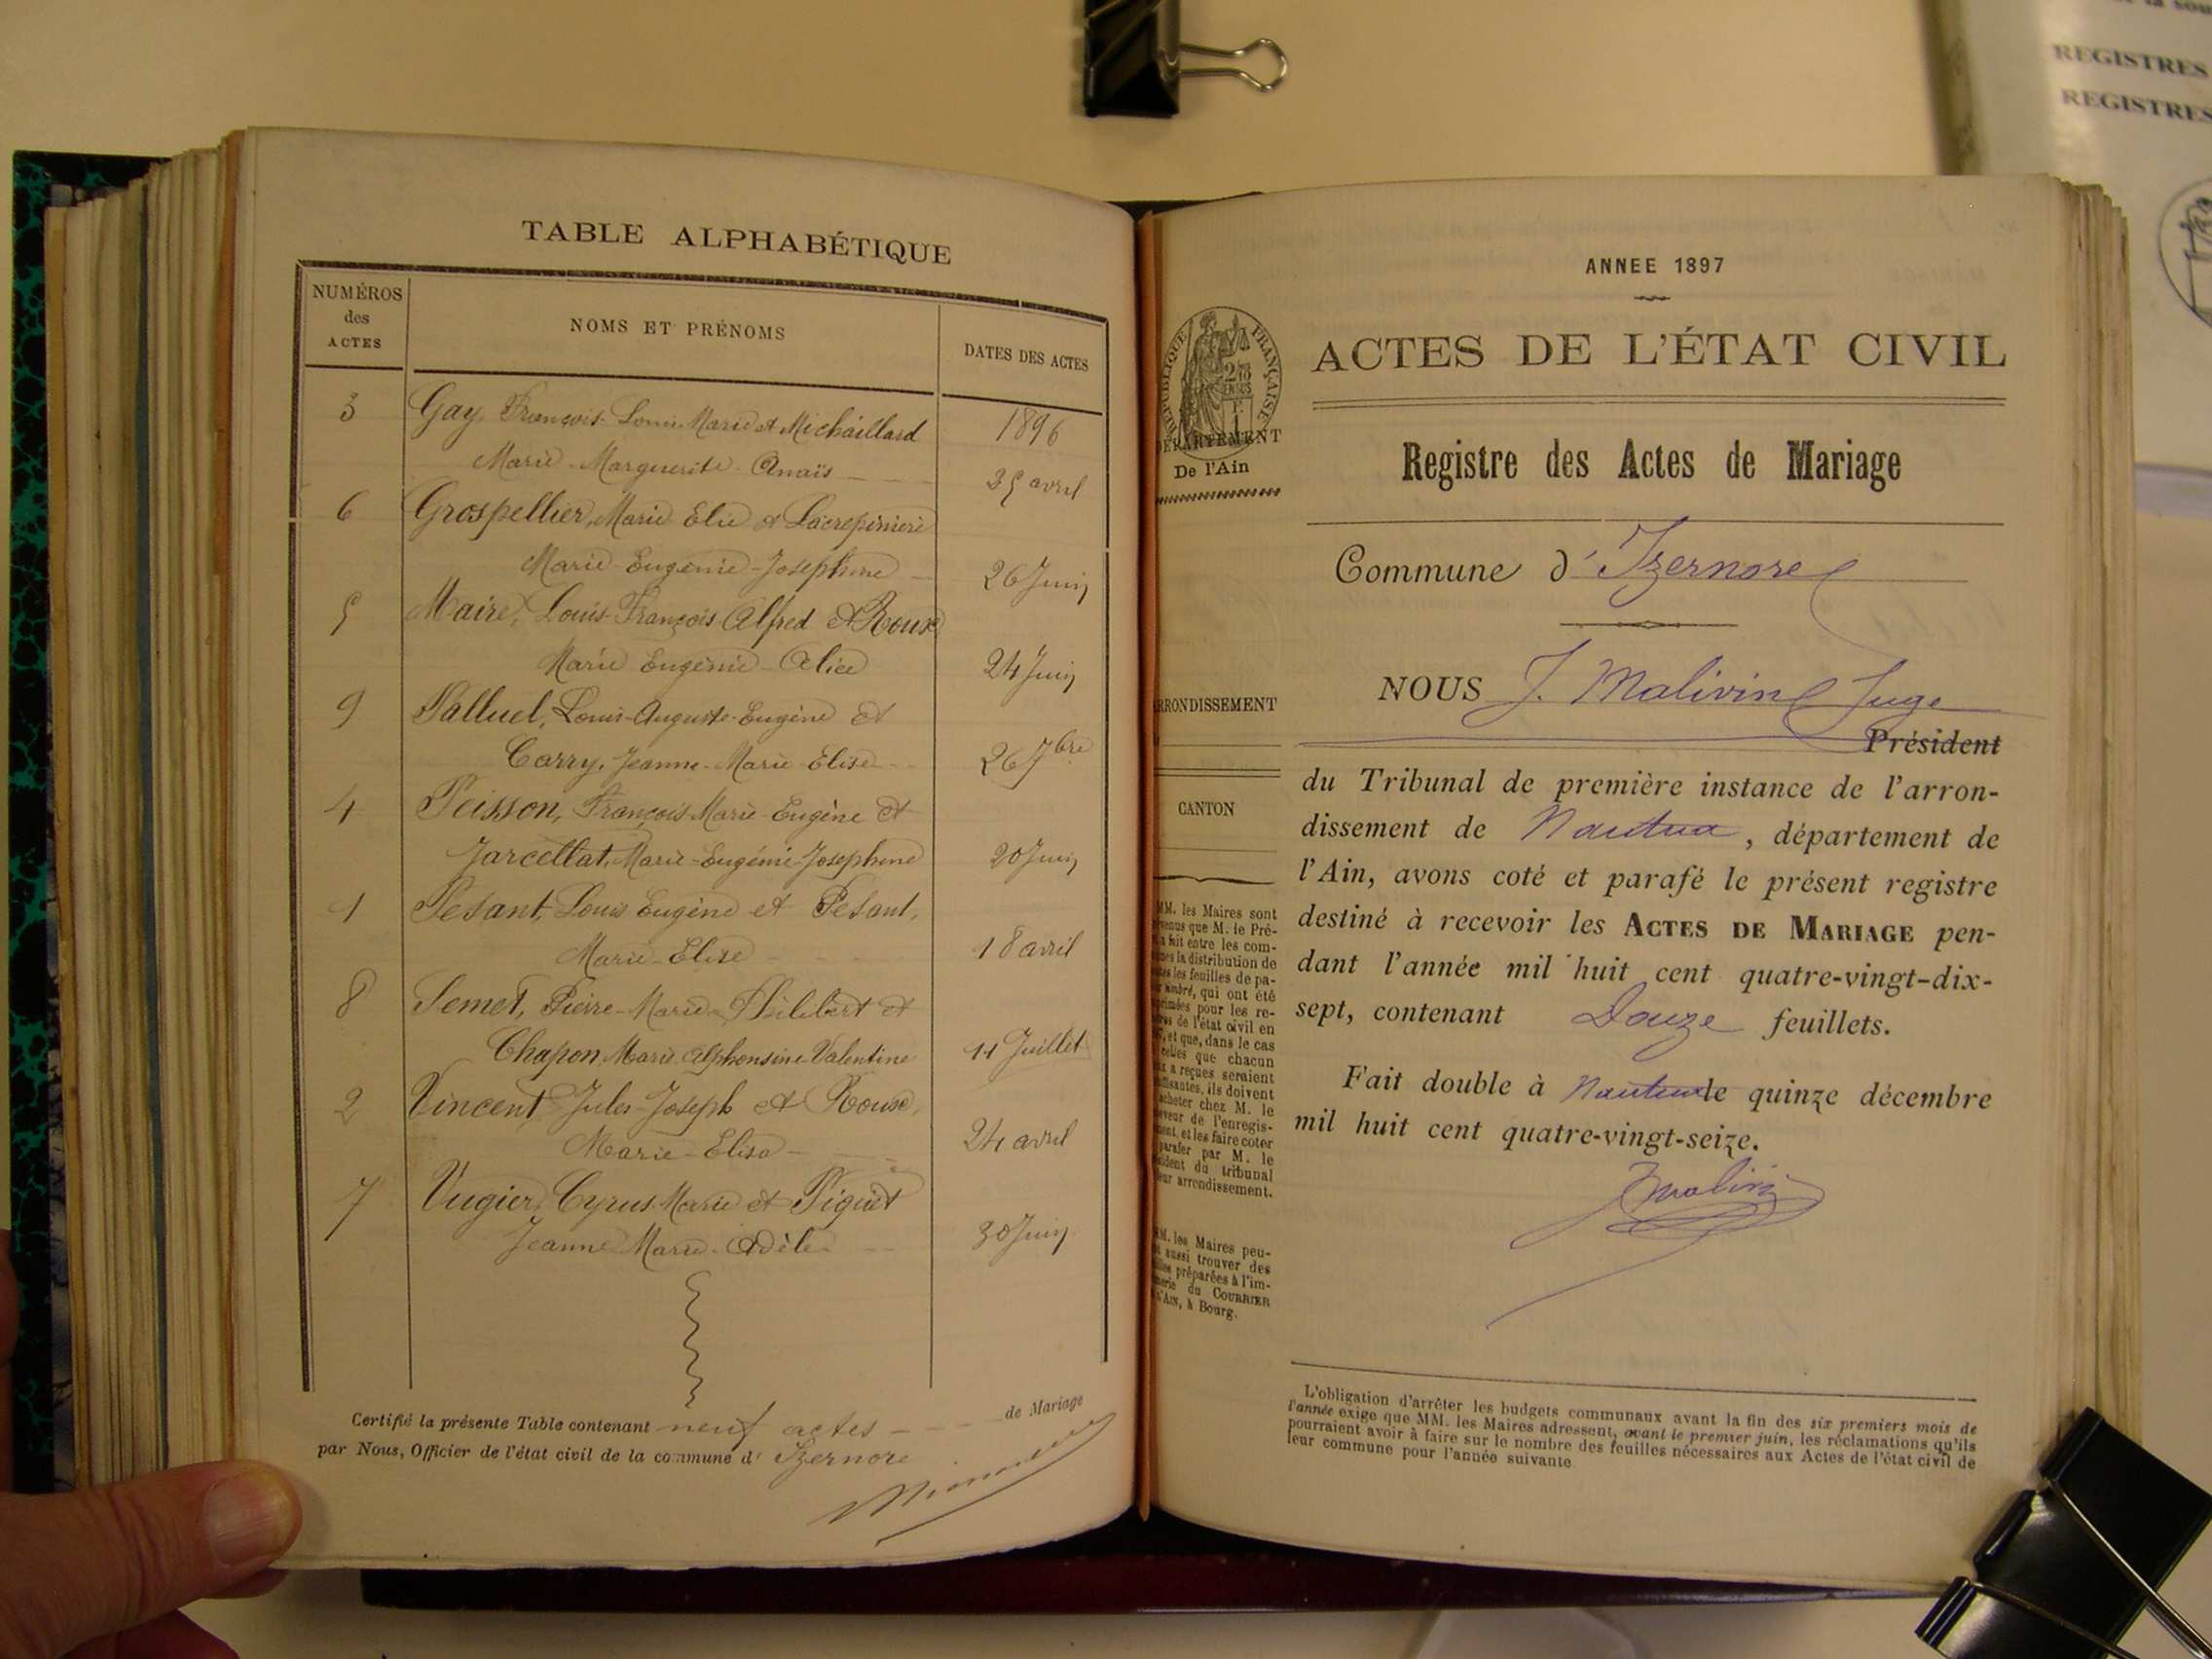 TABLE ALPHABÉTIQUE
NUMÉROS
des
ACTES
NOMS ET PRÉNOMS
DATES DES ACTES
3 Gay, François-Louis-Marie et Michaillard 1896
Marie-Marguerite-Anaïs avril
6 Grospellier, Marie Elie et Lacrepiniere
Marie-Eugénie-Josephine 26 Juin
5 Maire, Louis-François Alfred et Rousse
Marie Eugénie-Alice 24 Juin
9 Palluel, Louis-Auguste-Eugène et
Carry, Jeanne-Marie-Elise 26 7bre
4 Peisson, François-Marie-Eugène et
Jarcellat, Marie-Eugénie-Josephine 20 Juin
1 Pesant, Louis Eugène et Pesant,
Marie-Elise 18 avril
8 Semet, Pierre-Marie-Philibert et
Chapon, Marie Alphonsine Valentine 11 Juillet
2 Vincent, Jules-Joseph et Rousse,
Marie-Elisa 24 avril
7 Vugier, Cyrus Marie et Piquet
Jeanne Marie-Adèle 30 Juin
Certifié la présente Table contenant neuf actes de Mariage
par Nous, Officier de l'état civil de la commune d' Izernore
ANNEE 1897
RÉPUBLIQUE FRANÇAISE
ACTES DE L'ÉTAT CIVIL
DÉPARTEMENT
De l'Ain
Registre des Actes de Mariage
Commune d' Izernore
NOUS J. Malivin Juge
ARRONDISSEMENT
Président
du Tribunal de première instance de l'arron-
CANTON
dissement de Nantua, département de
l'Ain, avons coté et parafé le présent registre
destiné à recevoir les ACTES DE MARIAGE pen-
dant l'année mil huit cent quatre-vingt-dix-
sept, contenant Douze feuillets.
Fait double à Nantua le quinze décembre
mil huit cent quatre-vingt-seize.
JMalivin
MM. les Maires sont
que M. le Pré-
fait entre les com-
la distribution de
les feuilles de pa-
qui ont été
pour les re-
de l'état civil en
et que, dans le cas
celles que chacun
a reçues seraient
ils doivent
acheter chez M. le
de l'enregis-
et les faire coter
parafer par M. le
du tribunal
arrondissement.
MM. les Maires peu-
aussi trouver des
préparées à l'im-
du COURRIER
L'AIN, à Bourg.
L'obligation d'arrêter les budgets communaux avant la fin des six premiers mois de
l'année exige que MM. les Maires adressent, avant le premier juin, les réclamations qu'ils
pourraient avoir à faire sur le nombre des feuilles nécessaires aux Actes de l'état civil de
leur commune pour l'année suivante
REGISTRES
REGISTRES